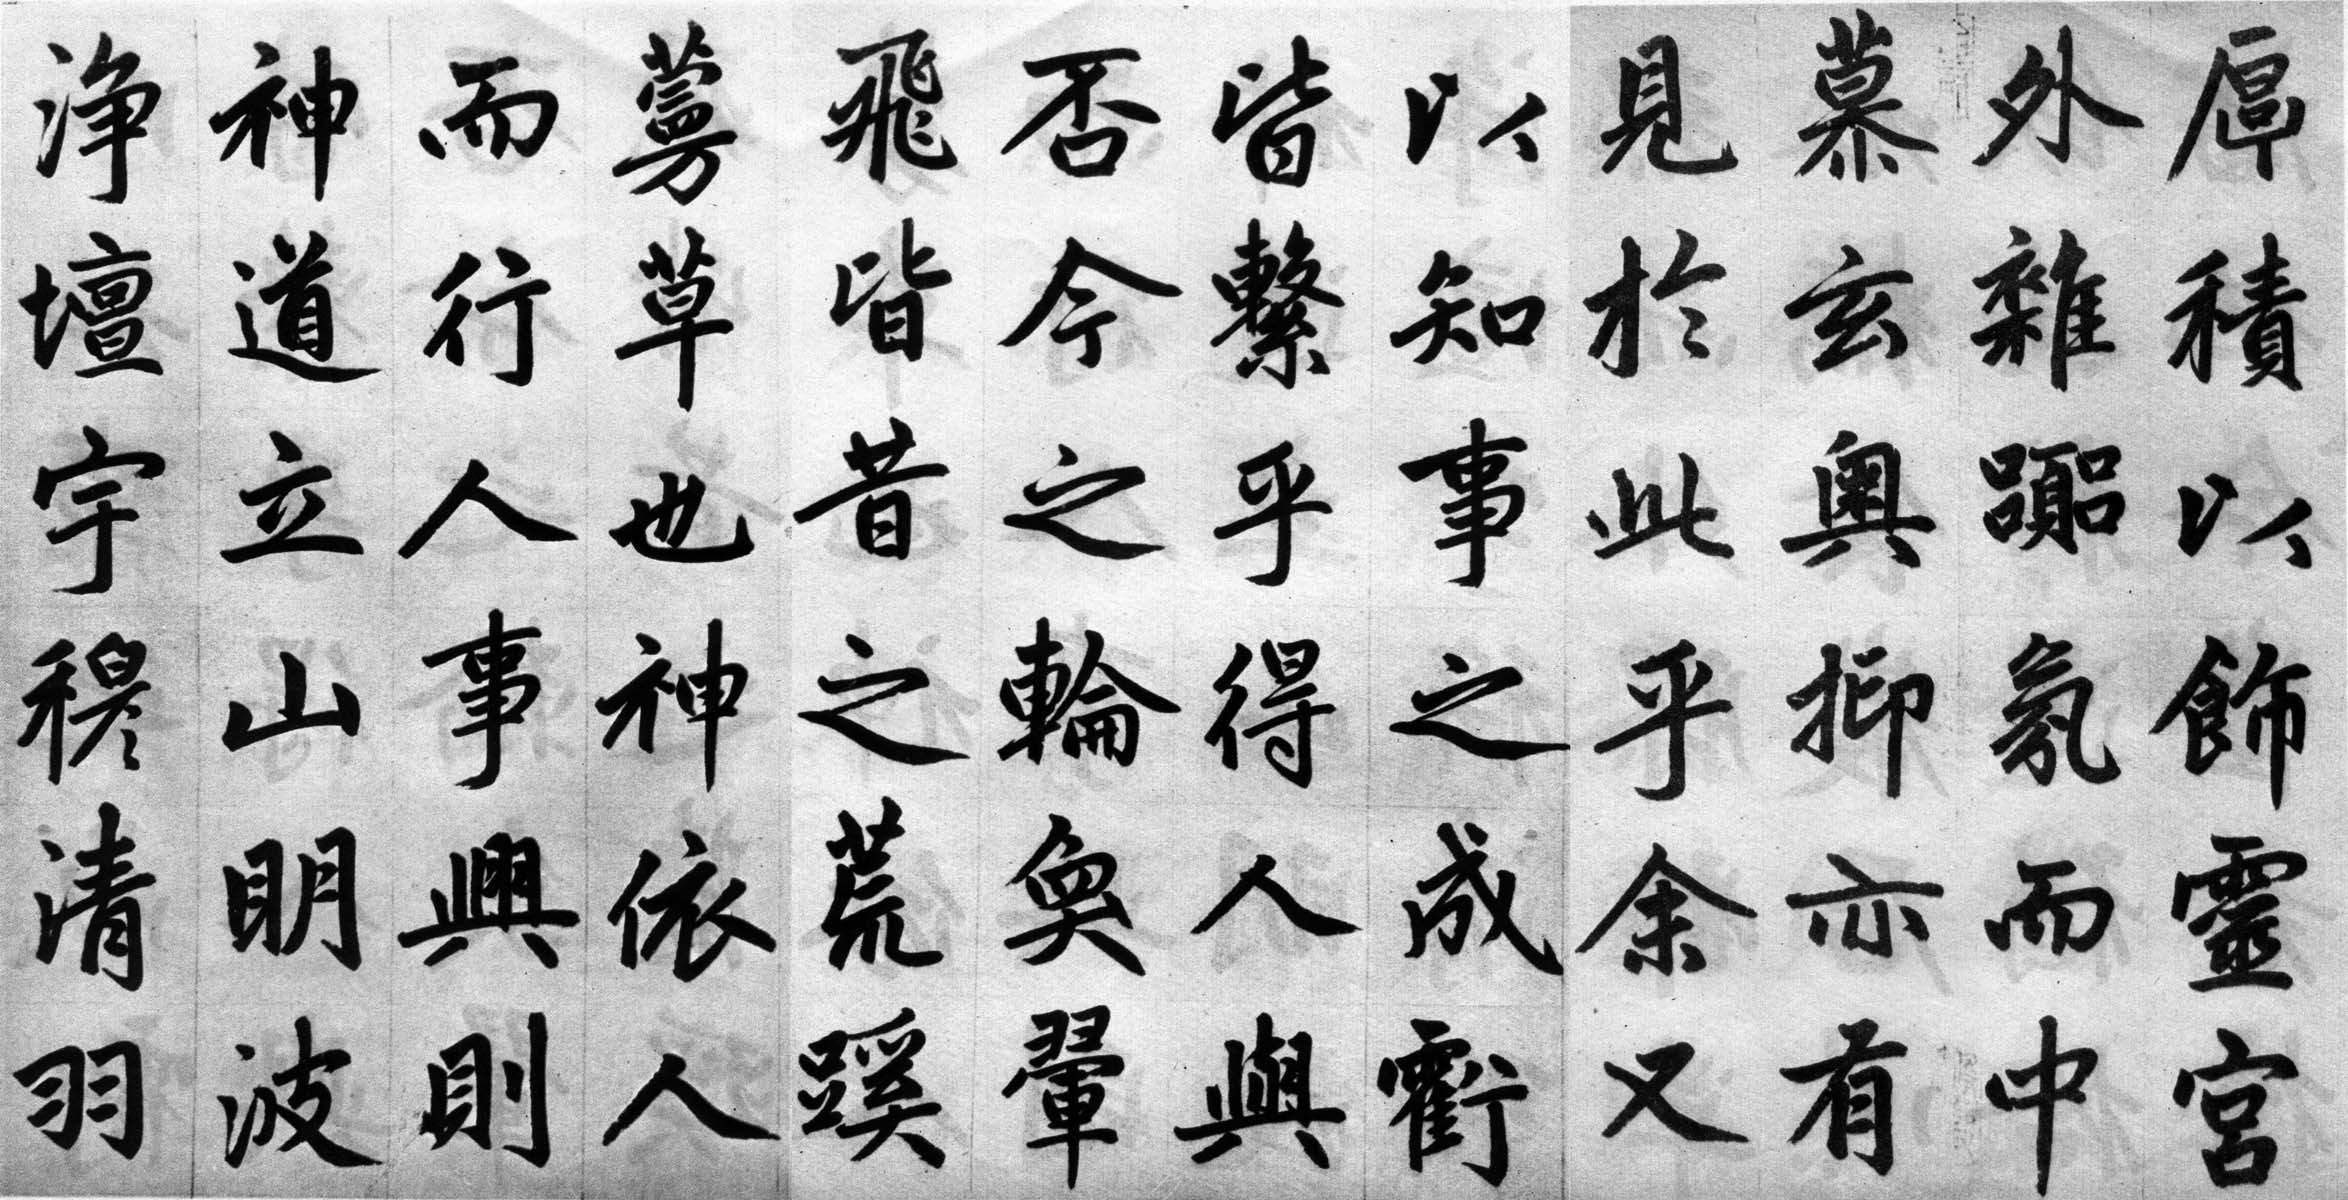 厚積以飾靈宮
外雜囂氛而中
慕玄奧抑亦有
見於此乎余又
以知事之成虧
皆繫乎得人與
否今之輪奐翬
飛皆昔之荒蹊
蔓草也神依人
而行人事興則
神道立山明波
淨壇宇穆清羽